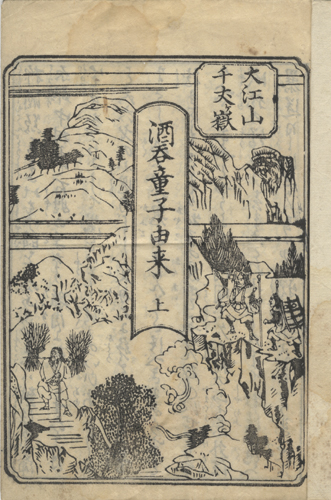 大江山
千丈嶽
酒呑童子由来 上